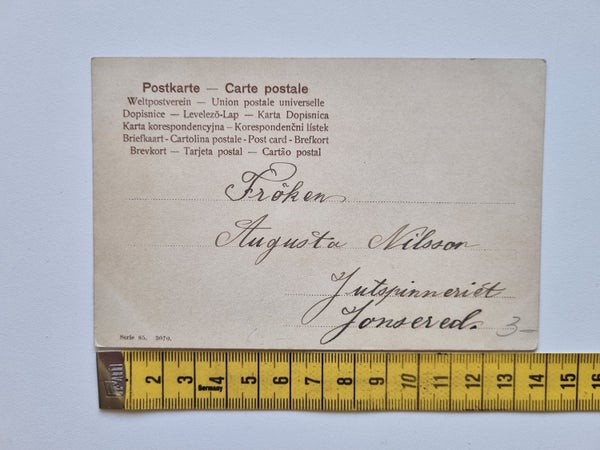 Postkarte — Carte postale
Weltpostverein — Union postale universelle
Dopisnice — Levelező-Lap — Karta Dopisnica
Karta korespondencyjna – Korespondenční lístek
Briefkaart - Cartolina postale - Post card - Brefkort
Brevkort — Tarjeta postal — Cartão postal
Fröken
Augusta Nilsson
Jutspinneriet
Jonsered.
3–
Serie 85. 3070.
2 3 4 5 6 7 8 9 10 11 12 13 14 15 16
Germany